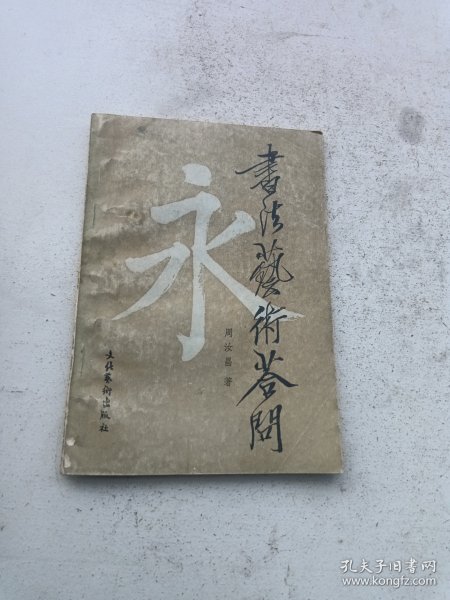 書法藝術答問
永
周汝昌 著
文化藝術出版社
孔夫子旧书网
www.kongfz.com